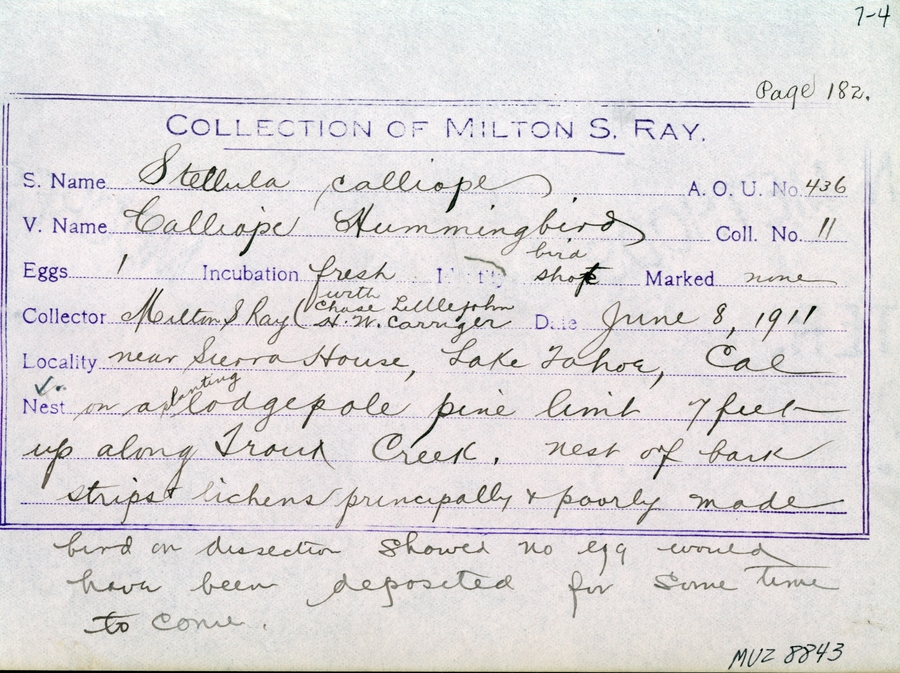 7-4
Page 182.
COLLECTION OF MILTON S. RAY.
S. Name Stellula calliope A. O. U. No. 436
V. Name Calliope Hummingbird Coll. No. 11
Eggs 1 Incubation fresh bird shot Marked none
Collector Milton S Ray (with Chase Littlejohn H. W. Carriger Date June 8, 1911
Locality near Sierra House, Lake Tahoe, Cal
Nest on a slanting lodgepole pine limb 7 feet
up along Trout Creek. nest of bark
strips & lichens principally & poorly made
bird on dissection showed no egg would
have been deposited for some time
to come.
MVZ 8843